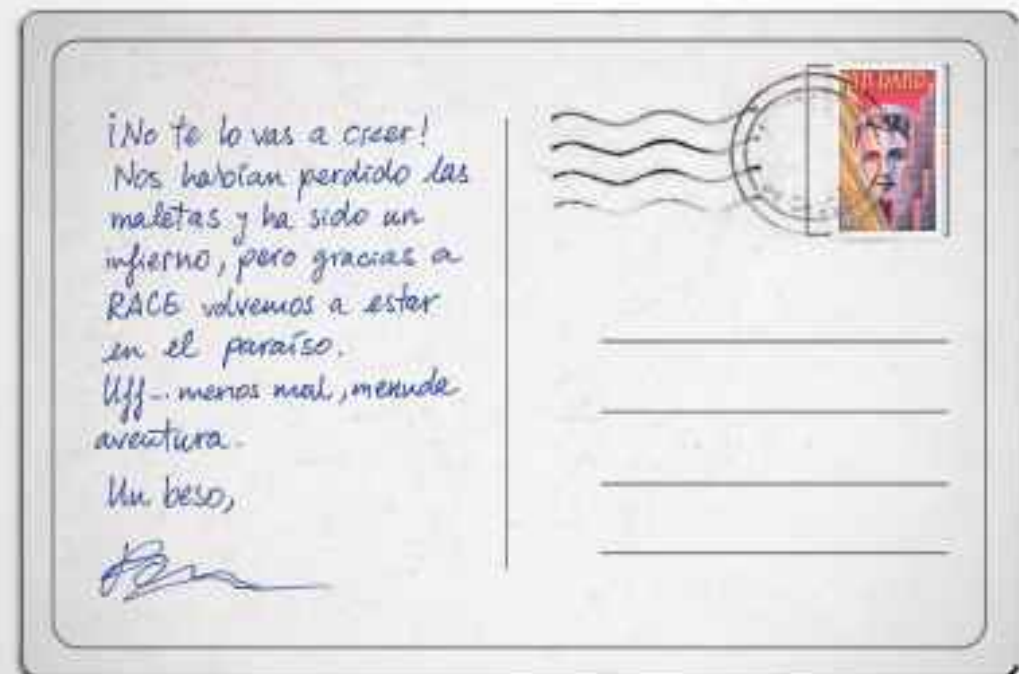 ¡No te lo vas a creer!
Nos habían perdido las
maletas y ha sido un
infierno, pero gracias a
RACE volvemos a estar
en el paraíso.
Uff... menos mal, menuda
aventura.
Un beso,